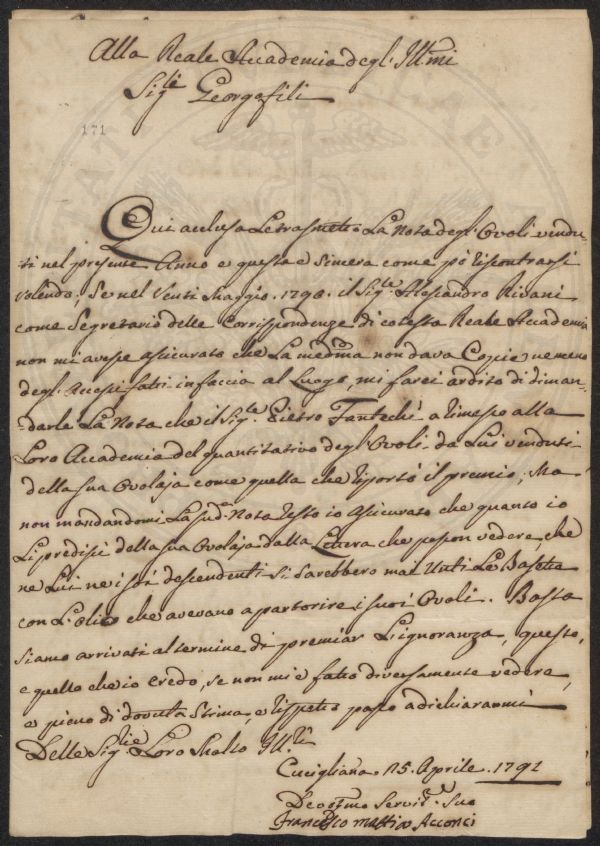 Alla Reale Accademia degl'Ill:mi
Sig:ri Georgofili
171
Qui acclusa Le trasmetto La Nota degl'Ovoli vendu-
ti nel presente Anno e questa e sincera come pò riscontrarsi
volendo; Se nel Venti Maggio 1790. il Sig:re Alesandro Rivani
come Segretario delle Corrispondenze di cotesta Reale Accademia
non mi avesse asicurato che La medma non dava Copie nemeno
degl'Accesi fatti in faccia al Luogo, mi farei ardito di diman-
darle La Nota che il Sig:re Pietro Fantechi à rimesso alla
Loro Accademia del quantitativo degl'Ovoli da Lui venduti
della sua Ovolaja come quella che riportò il premio; Ma
non mandandomi La sud:a Nota resto io Asicurato che quanto io
Li predissi della sua Ovolaja dalla Lettera che posson vedere, che
ne Lui ne i soi descendenti si sarebbero mai Unti Le Basette
con L'olio che avevano a partorire i suoi Ovoli. Basta
siamo arrivati al termine di premiar L'ignoranza, questo,
e quello che io credo, se non mi è fatto diversamente vedere,
e pieno di dovuta Stima, e rispetto passo a dichiararmi
Delle Sig:rie Loro Molto Ill:ri
Cucigliana 15. Aprile. 1791
Devotimo Servit:e Suo
Francesco Mattias Acconci